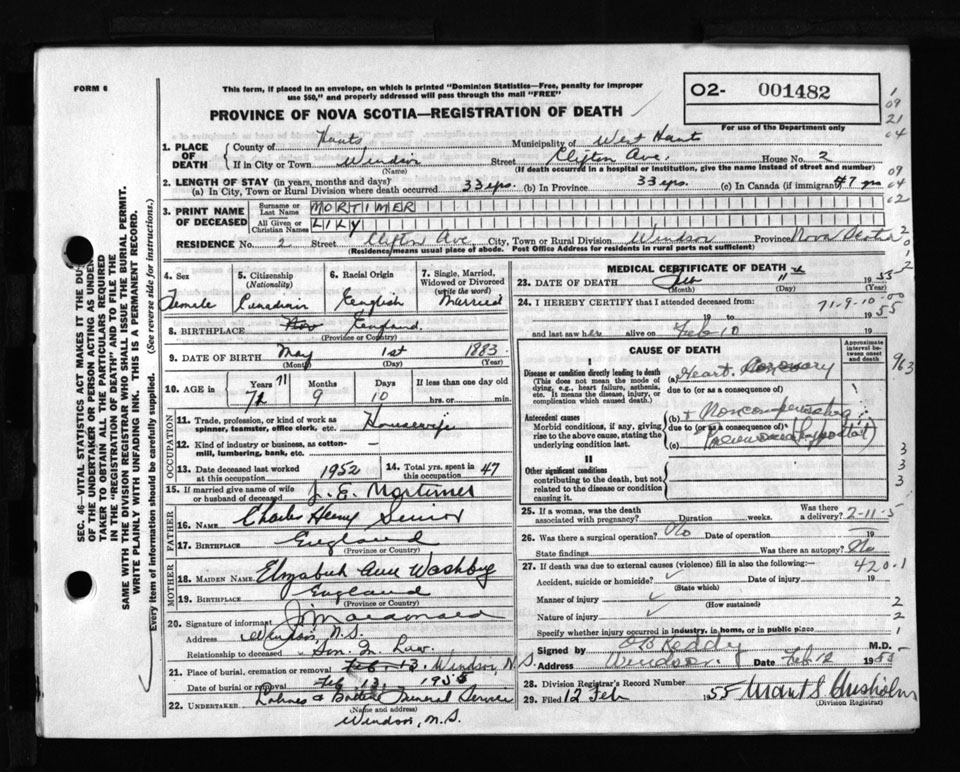 FORM 6
This form, if placed in an envelope, on which is printed "Dominion Statistics—Free, penalty for improper
use $50," and properly addressed will pass through the mail "FREE"
PROVINCE OF NOVA SCOTIA—REGISTRATION OF DEATH
O2- 001482
For use of the Department only
1. PLACE OF DEATH
County of Hants Municipality of West Hants
If in City or Town Windsor Street Clifton Ave. House No. 2
(Name) (If death occurred in a hospital or institution, give the name instead of street and number)
2. LENGTH OF STAY (in years, months and days)
(a) In City, Town or Rural Division where death occurred 33 yrs. (b) In Province 33 yrs. (c) In Canada (if immigrant) 47 yrs
3. PRINT NAME OF DECEASED
Surname or Last Name MORTIMER
All Given or Christian Names LILY
RESIDENCE No. 2 Street Clifton Ave City, Town or Rural Division Windsor Province Nova Scotia
(Residence means usual place of abode. Post Office Address for residents in rural parts not sufficient)
4. Sex Female
5. Citizenship (Nationality) Canadian
6. Racial Origin English
7. Single, Married, Widowed or Divorced (write the word) Married
8. BIRTHPLACE England
(Province or Country)
9. DATE OF BIRTH May 1st 1883
(Month) (Day) (Year)
10. AGE in Years 72 71 Months 9 Days 10 If less than one day old hrs. or min.
OCCUPATION
11. Trade, profession, or kind of work as spinner, teamster, office clerk, etc. Housewife
12. Kind of industry or business, as cotton-mill, lumbering, bank, etc.
13. Date deceased last worked at this occupation 1952
14. Total yrs. spent in this occupation 47
15. If married give name of wife or husband of deceased J. E. Mortimer
FATHER
16. NAME Charles Henry Senior
17. BIRTHPLACE England
(Province or Country)
MOTHER
18. MAIDEN NAME Elizabeth Ann
19. BIRTHPLACE England
(Province or Country)
20. Signature of informant
Address Windsor, N.S.
Relationship to deceased Son In Law.
21. Place of burial, cremation or removal Feb. 13. Windsor, N.S.
Date of burial or removal Feb 13, 1955
22. UNDERTAKER Funeral Service
(Name and Address)
Windsor, N.S.
MEDICAL CERTIFICATE OF DEATH
23. DATE OF DEATH Feb 11 1955
(Month) (Day) (Year)
24. I HEREBY CERTIFY that I attended deceased from
71-9-10-00
19 to 1955
and last saw her alive on Feb 10 19
CAUSE OF DEATH
Approximate interval between onset and death
I
Disease or condition directly leading to death
(This does not mean the mode of dying, e.g., heart failure, asthenia, etc. It means the disease, injury, or complication which caused death.)
(a) Heart. Coronary
due to (or as a consequence of)
Antecedent causes
Morbid conditions, if any, giving rise to the above cause, stating the underlying condition last.
(b)
due to (or as a consequence of)
(c)
II
Other significant conditions
contributing to the death, but not related to the disease or condition causing it.
25. If a woman, was the death associated with pregnancy? Duration weeks. Was there a delivery? 2-11-5
26. Was there a surgical operation? No Date of operation 19
State findings Was there an autopsy? No
27. If death was due to external causes (violence) fill in also the following: 420.1
Accident, suicide or homicide? Date of injury 19
(State which)
Manner of injury 2
(How sustained)
Nature of injury 2
Specify whether injury occurred in industry, in home, or in public place 1
Signed by Reddy M.D.
Address Windsor. Date Feb 12 1955
28. Division Registrar's Record Number
29. Filed 12 Feb 1955 Grant S. Chisholm
(Division Registrar)
SEC. 46—VITAL STATISTICS ACT MAKES IT THE DUTY
OF THE UNDERTAKER OR PERSON ACTING AS UNDER
TAKER TO OBTAIN ALL THE PARTICULARS REQUIRED
IN THE "REGISTRATION OF DEATH" AND TO FILE THE
SAME WITH THE DIVISION REGISTRAR WHO SHALL ISSUE THE BURIAL PERMIT.
WRITE PLAINLY WITH UNFADING INK. THIS IS A PERMANENT RECORD.
Every item of information should be carefully supplied. (See reverse side for instructions.)
1
09
21
04
09
04
02
2
0
1
2
963
3
3
3